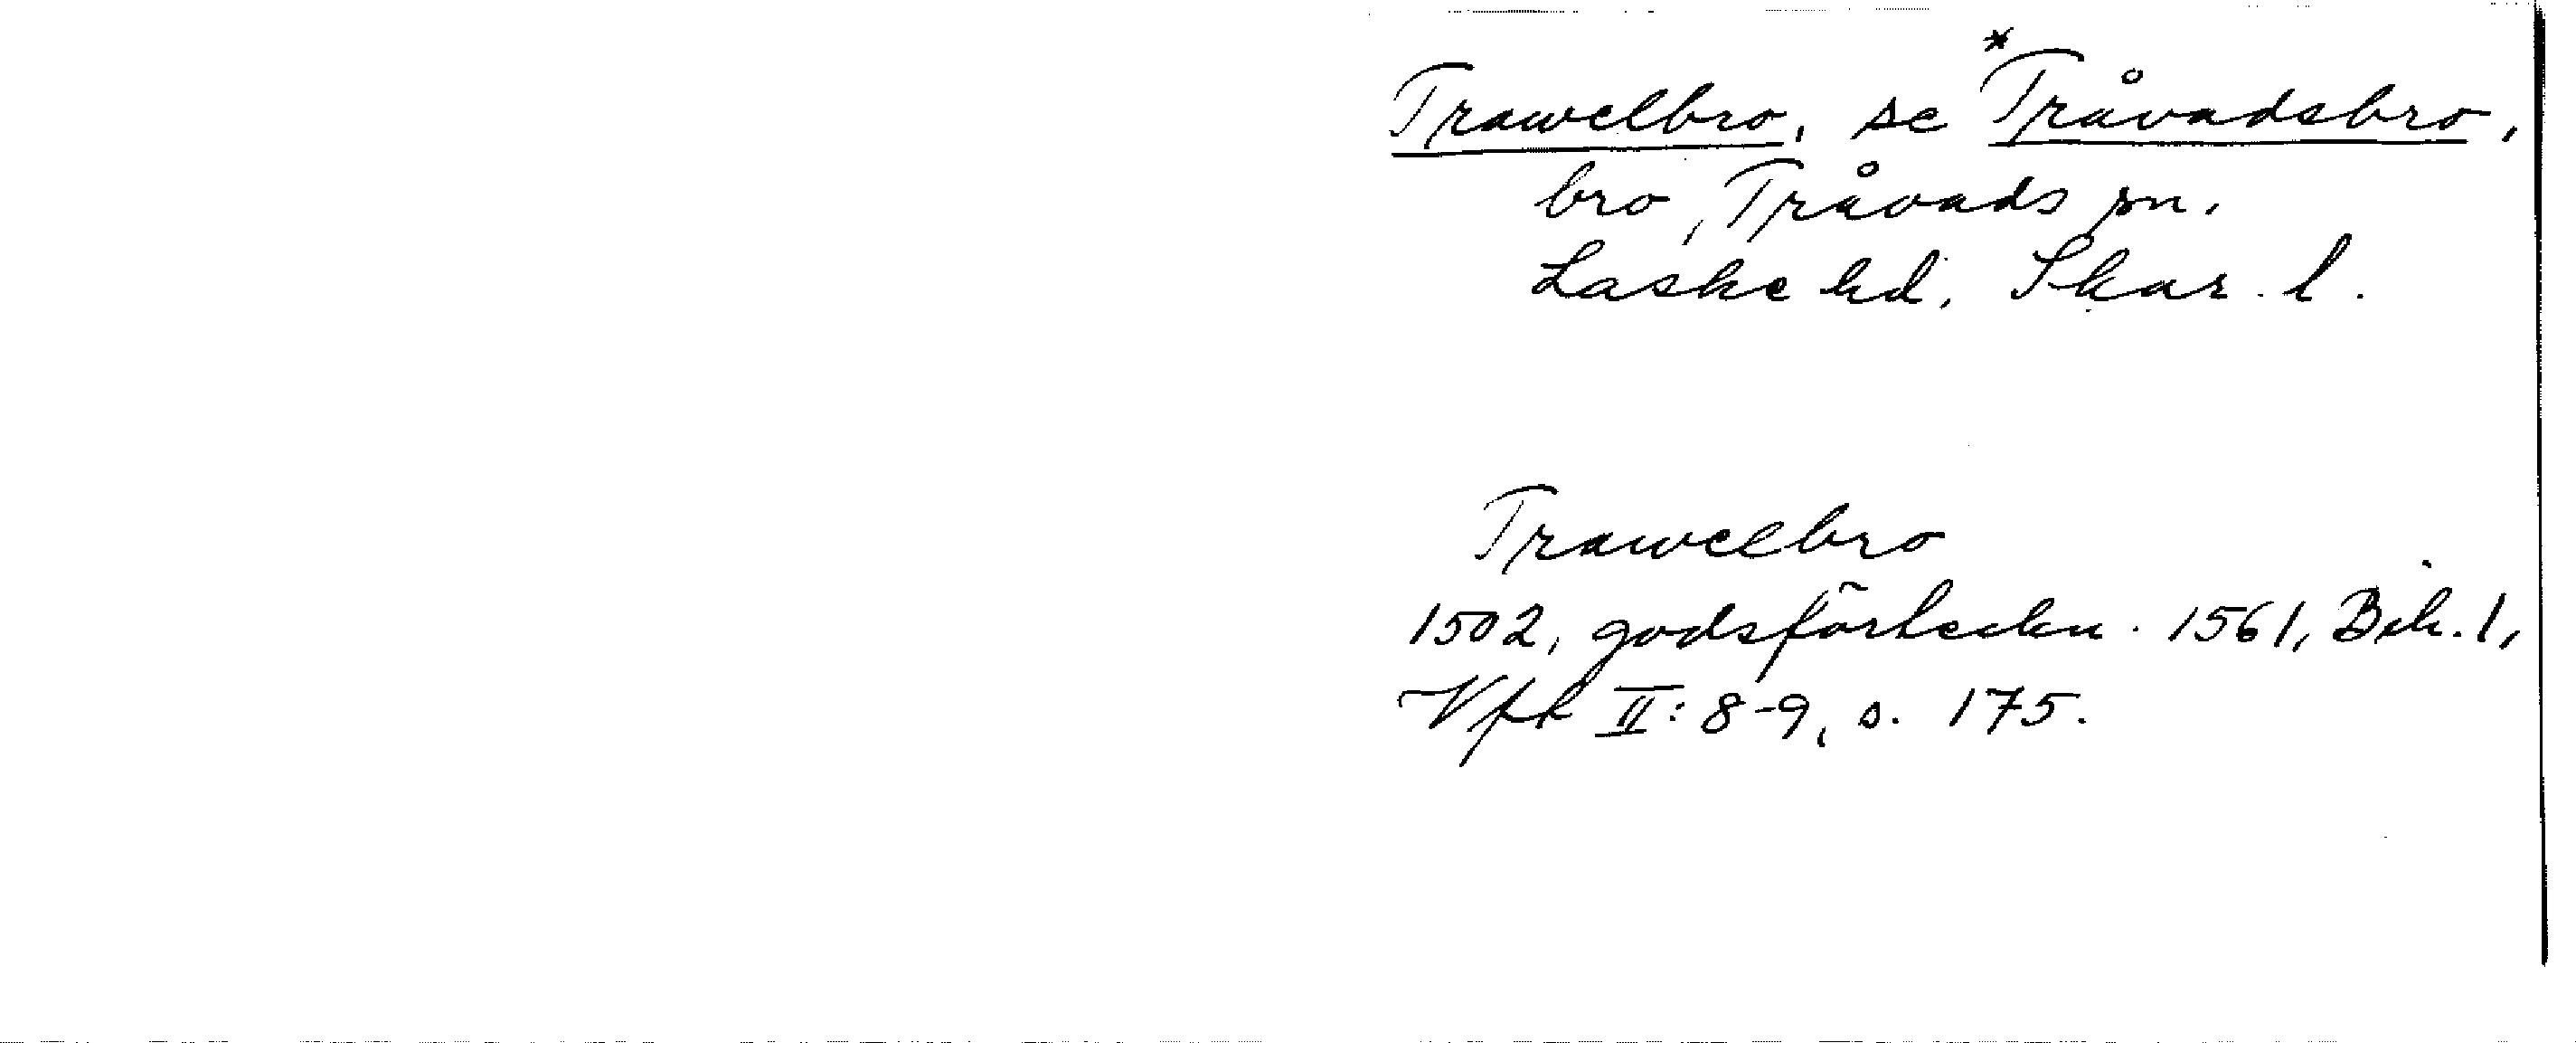 Trawelbro, se *Tråvadsbro,
bro, Tråvads sn.
Laske hd. Skar. l.
Trawelbro
1502, godsförteckn. 1561, Bih. 1,
Vft II: 8-9, s. 175.